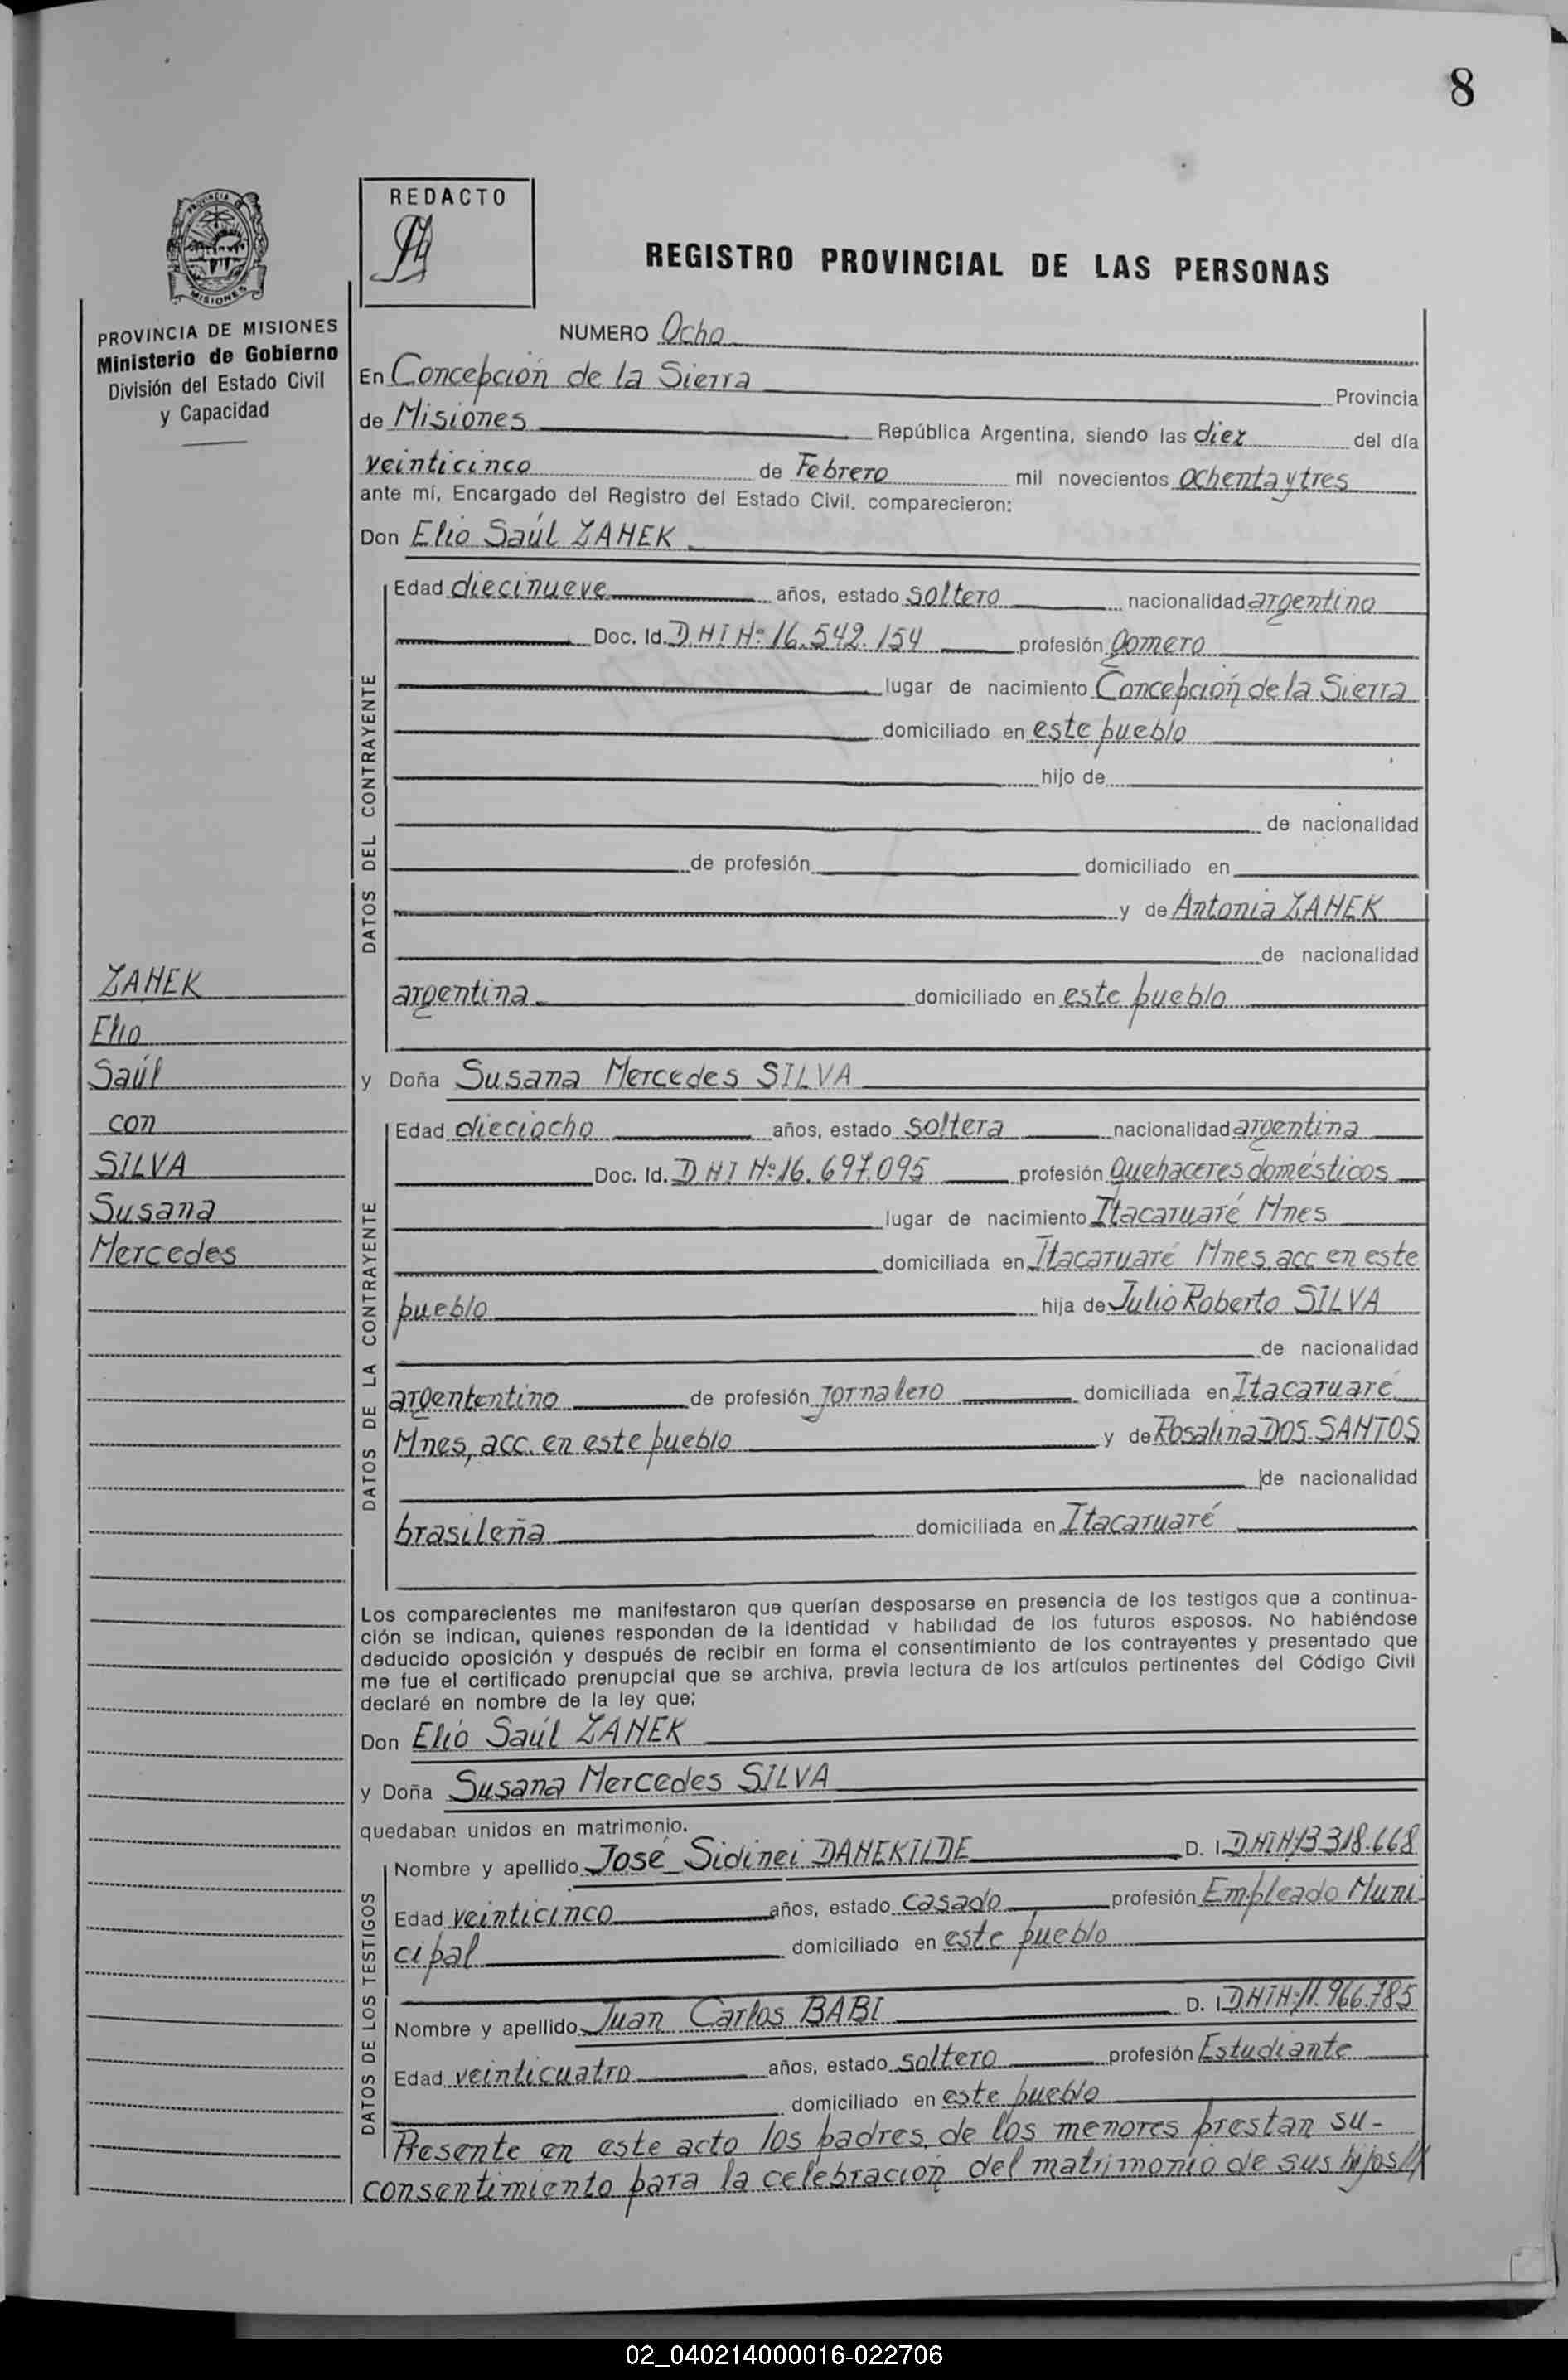 8
REDACTO
REGISTRO PROVINCIAL DE LAS PERSONAS
PROVINCIA DE MISIONES
Ministerio de Gobierno
División del Estado Civil
y Capacidad
NUMERO Ocho
En Concepción de la Sierra Provincia
de Misiones República Argentina, siendo las diez del día
veinticinco de Febrero mil novecientos ochenta y tres
ante mí, Encargado del Registro del Estado Civil, comparecieron:
Don Elio Saúl ZANEK
DATOS DEL CONTRAYENTE
Edad diecinueve años, estado soltero nacionalidad argentino
Doc. Id. DNI Nº 16.542.154 profesión gomero
lugar de nacimiento Concepción de la Sierra
domiciliado en este pueblo
hijo de
de nacionalidad
de profesión domiciliado en
y de Antonia ZANEK
de nacionalidad
argentina domiciliado en este pueblo
ZANEK
Elio
Saúl
con
SILVA
Susana
Mercedes
y Doña Susana Mercedes SILVA
DATOS DE LA CONTRAYENTE
Edad dieciocho años, estado soltera nacionalidad argentina
Doc. Id. DNI Nº 16.697.095 profesión quehaceres domésticos
lugar de nacimiento Itacaruaré Mnes
domiciliada en Itacaruaré Mnes, acc en este
pueblo hija de Julio Roberto SILVA
de nacionalidad
argententino de profesión jornalero domiciliada en Itacaruaré
Mnes, acc. en este pueblo y de Rosalina DOS SANTOS
de nacionalidad
brasileña domiciliada en Itacaruaré
Los comparecientes me manifestaron que querían desposarse en presencia de los testigos que a continua-
ción se indican, quienes responden de la identidad y habilidad de los futuros esposos. No habiéndose
deducido oposición y después de recibir en forma el consentimiento de los contrayentes y presentado que
me fue el certificado prenupcial que se archiva, previa lectura de los artículos pertinentes del Código Civil
declaré en nombre de la ley que;
Don Elio Saúl ZANEK
y Doña Susana Mercedes SILVA
quedaban unidos en matrimonio.
DATOS DE LOS TESTIGOS
Nombre y apellido José Sidinei DANEKILDE D. I. DNI Nº 13.318.668
Edad veinticinco años, estado casado profesión Empleado Muni
cipal domiciliado en este pueblo
Nombre y apellido Juan Carlos BABI D. I. DNI Nº 11.966.785
Edad veinticuatro años, estado soltero profesión Estudiante
domiciliado en este pueblo
Presente en este acto los padres de los menores prestan su-
consentimiento para la celebración del matrimonio de sus hijos//
02_040214000016-022706